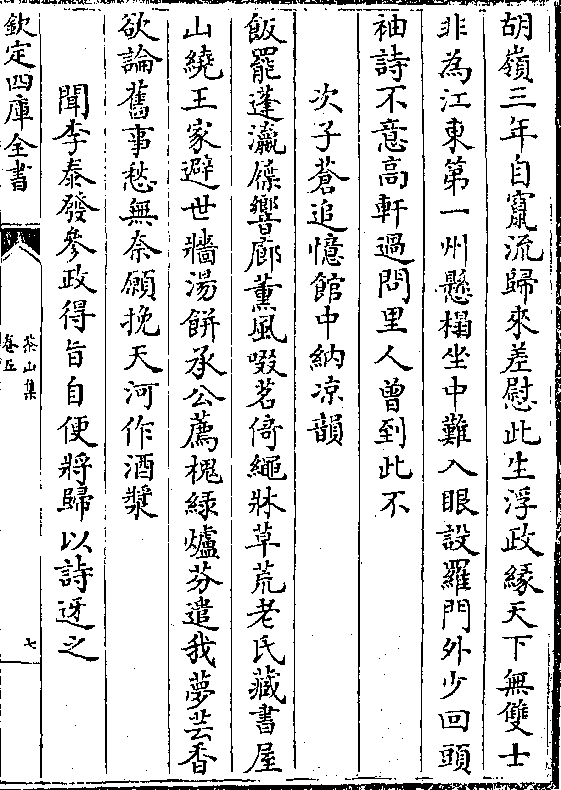 胡嶺三年自竄流歸來差慰此生浮政緣天下無雙士
非為江東第一州懸榻坐中難入眼設羅門外少回頭
袖詩不意高軒過問里人曾到此不
次子蒼追憶館中納凉韻
飯罷蓬瀛屧響廊薰風啜茗倚繩牀草荒老氏藏書屋
山繞王家避世牆湯餅承公薦槐緑爐芬遣我夢芸香
欲論舊事愁無奈願挽天河作酒漿
聞李泰發參政得旨自便將歸以詩迓之
欽定四庫全書
茶山集
卷五
七